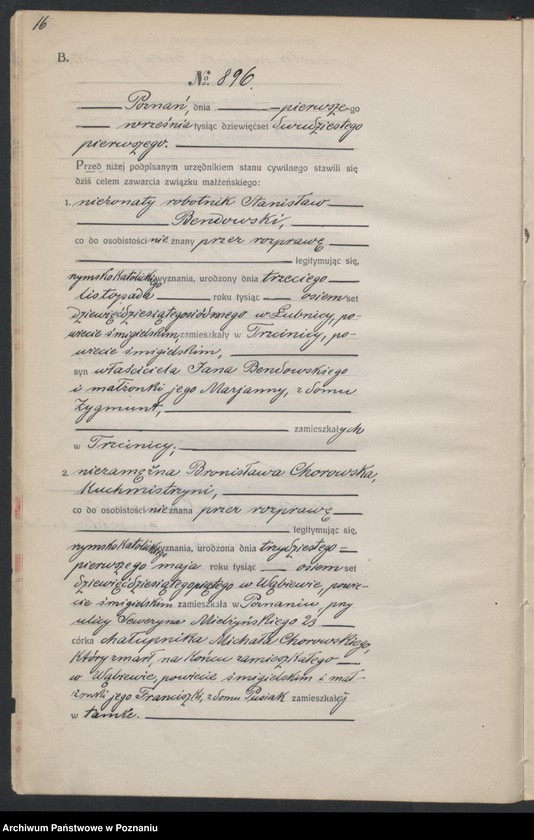 16
B.
No. 896.
Poznań, dnia pierwszego
września tysiąc dziewięćset dwudziestego
pierwszego.
Przed niżej podpisanym urzędnikiem stanu cywilnego stawili się
dziś celem zawarcia związku małżeńskiego:
1. nieżonaty robotnik Stanisław
Bendowski,
co do osobistości nie znany przez rozprawę
legitymując się,
rzymsko katolickiego wyznania, urodzony dnia trzeciego
listopada roku tysiąc ośiemset
dziewięćdziesiątego siódmego w Łubnicy, po-
wiecie śmigielskim, zamieszkały w Trzcinicy, po-
wiecie śmigielskim,
syn właściciela Jana Bendowskiego
i małżonki jego Marjanny, z domu
Zygmunt,
zamieszkałych
w Trzcinicy;
2. niezamężna Bronisława Chorowska,
kuchmistrzyni,
co do osobistości nie znana przez rozprawę
legitymując się,
rzymsko katolickiego wyznania, urodzona dnia trzydziestego =
pierwszego maja roku tysiąc ośiemset
dziewięćdziesiątego piątego w Wąbiewie, powie-
cie śmigielskim zamieszkała w Poznaniu, przy
ulicy Seweryna Mielżyńskiego 23
córka chałupnika Michała Chorowskiego,
który zmarł, na końcu zamieszkałego
w Wąbiewie, powiecie śmigielskim i mał-
żonki jego Franciszki, z domu Pusiak zamieszkałej
w tamże.
Archiwum Państwowe w Poznaniu